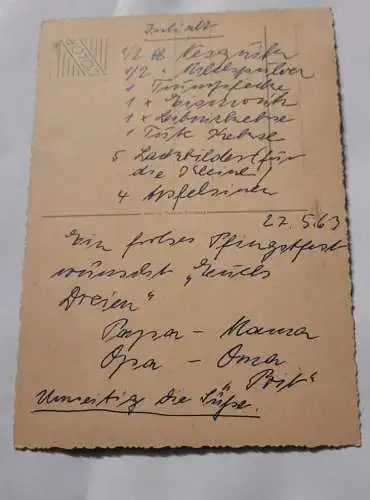 Inhalt
1/2 tb Nescaffee
1/2 " Milchpulver
1 Trumpfecke
1 x
1 x Leibnizkekse
1 Tüte Kekse
5 Lackbilder (für
die Kleine)
4 Apfelsinen
22.5.63
Ein frohes Pfingstfest
wünscht „Euch
Dreien"
Papa - Mama
Opa - Oma
"Post"
Umseitig die Süße.